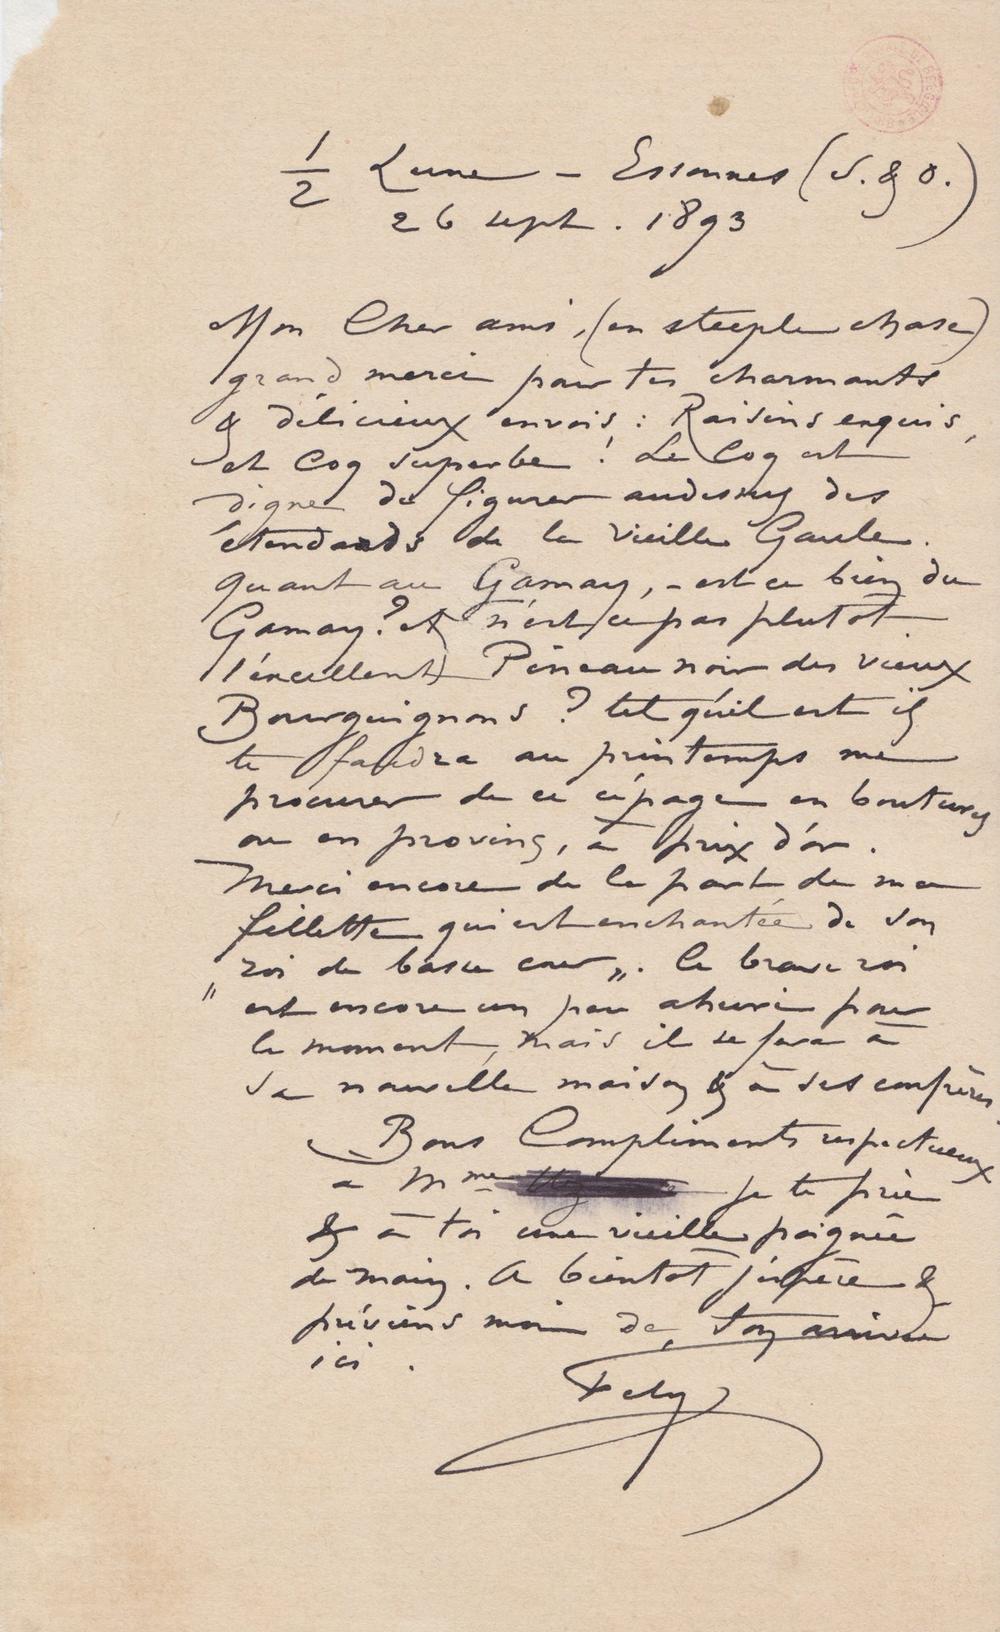 1/2 Lune – Essonnes (S. & O.)
26 sept. 1893
Mon Cher ami, (en steeple chase)
grand merci pour tes charmants
& délicieux envois : Raisins exquis,
et Coq superbe ! Le Coq est
digne de figurer audessus des
étendards de la vieille Gaule.
Quant au Gamay, – est ce bien du
Gamay? et n'est ce pas plutôt
l'excellent Pineau noir des vieux
Bourguignons ? tel qu'il est il
te faudra au printemps me
procurer de ce cépage en boutures
ou en provins, à prix d'or.
Merci encore de la part de ma
fillette qui est enchantée de son
"roi de basse cour". Ce brave roi
est encore un peu ahuri pour
le moment, mais il se fera à
sa nouvelle maison & à ses confrères.
Bons Compliments respectueux
a Mme je te prie
& à toi une vieille poignée
de main. A bientôt j'espère &
préviens moi de ton arrivée
ici.
Fély